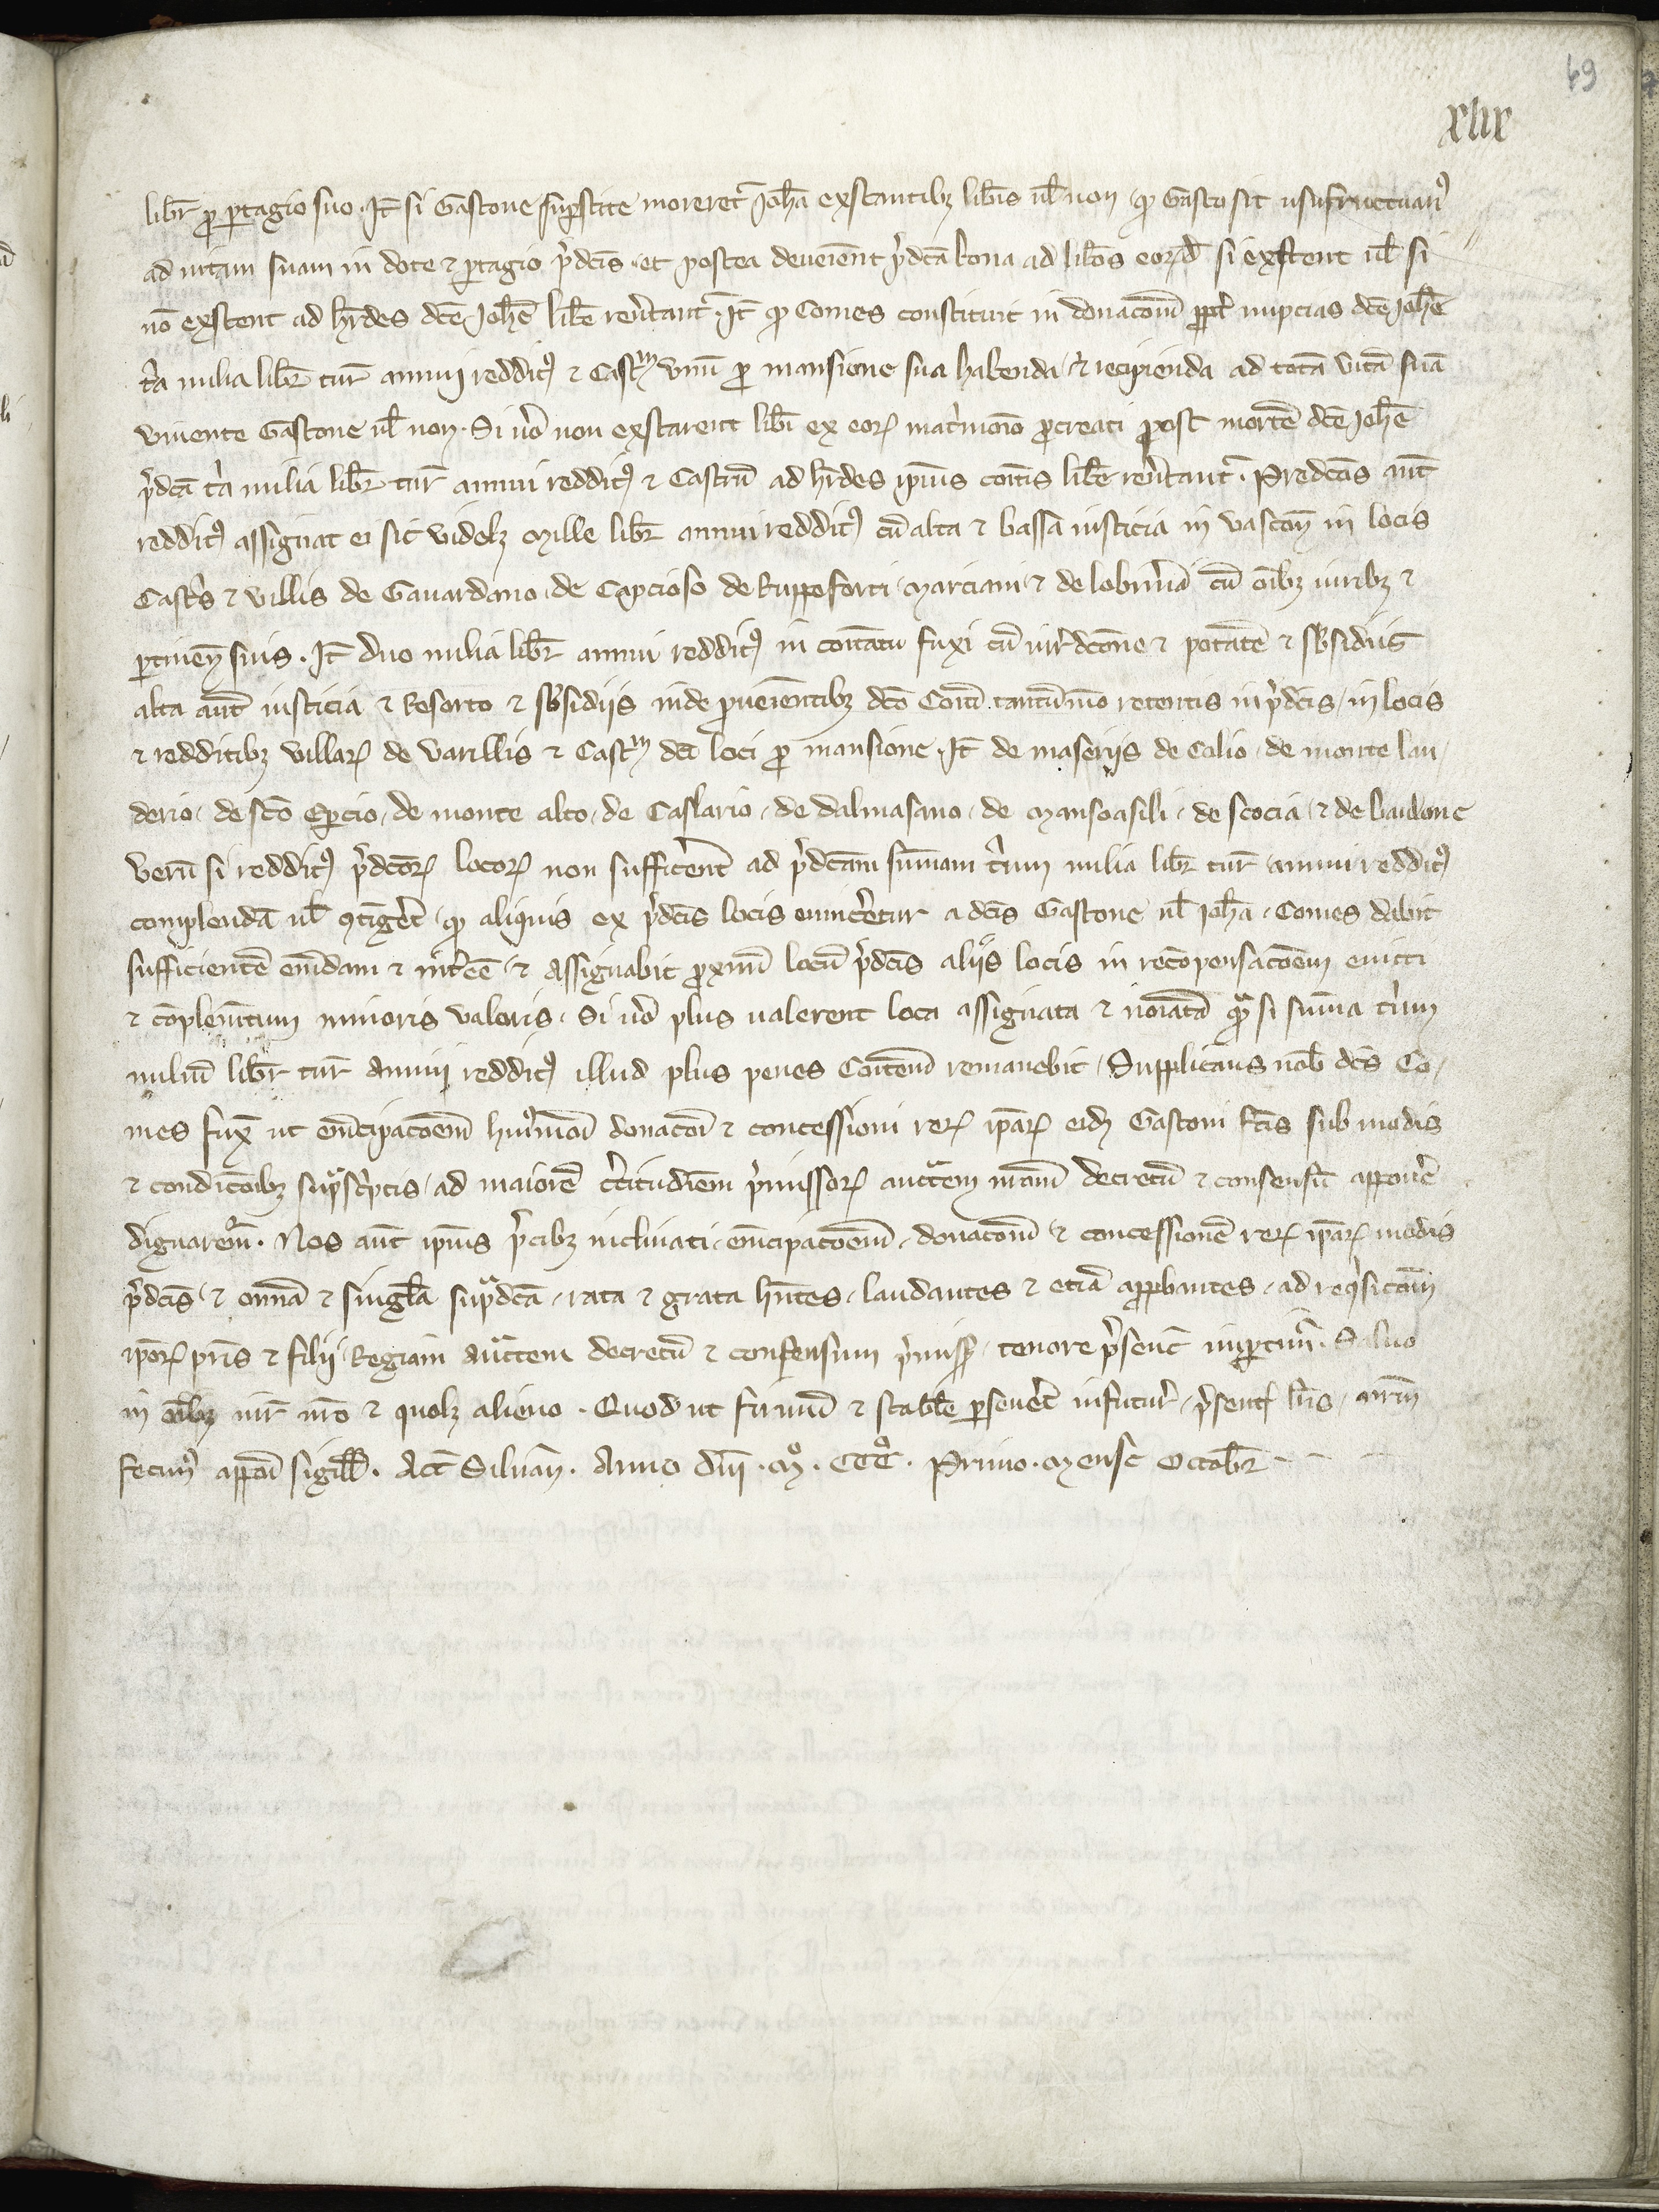 49
xlix
libr̄ ꝓ ꝑtagio suo. It̄ si Gastone suꝑstite moreret᷑ Joh̄a exstantibꝫ lib̄is ul̄ non / ꝙ Gasto sit usufructuariꝰ
ad uitam suam in dote ⁊ ꝑtagio p̄dc̄is. et postea deueient p̄dc̄a bona ad lib̄os eorūd̄ si exstent ul̄ si
nō exstent ad h̄edes dc̄e Joh̄e lib̄e reu̓tant᷑. It̄ ꝙ Comes constituit in donacōem ꝓpt̄ nupcias dc̄e Joh̄e
t̓a milia libr̄ tur̄ annui redditꝰ ⁊ Castrum unū ꝓ mansione sua habenda / ⁊ recipienda ad totā uitā suā
viuente Gastone ul̄ non. Si u̓o non exstarent lib̄i ex eoꝝ mat̓monio ꝓcreati post mortē dc̄e Joh̄e
p̄dc̄a t̓a milia libr̄ tur̄ annui redditꝰ ⁊ Castrū ad h̄edes ipius comitis lib̄e reu̓tant᷑. Predc̄os aut̄
redditꝰ assignat ei sic videlꝫ Mille libr̄ annui redditꝰ cū alta ⁊ bassa iusticia in vascoñ in locis
Castris ⁊ villis de Gauardano / de Capcioso de Ruppeforti Marciani / ⁊ de lobin̄ia cū oīb̄ꝫ iuribꝫ ⁊
ꝑtineñ suis. It̄ duo milia libr̄ annui redditꝰ in comitatu fuxi cū iurisdc̄one ⁊ potate ⁊ sb̄sidiis
alta aut̄ iusticia ⁊ Resorto ⁊ sb̄sidiis inde ꝓueientibꝫ dc̄o Comiti tantūmō retentis in p̄dc̄is / in locis
⁊ redditibꝫ villaꝝ de Varillis ⁊ Castrum dc̄i loci ꝓ mansione. It̄ de maseriis de Calio / de monte lau/
derio / de sc̄o Epcio / de monte alto / de Caslario / de dalmasano / de Mansoasili / de scocia / ⁊ de baulone
Verū si redditꝰ p̄dc̄oꝝ locoꝝ non suffic̓ent ad p̄dc̄am sūmam t̓um milia libr̄ tur̄ annui redditꝰ
complendā ul̄ ꝯtig̓et ꝙ aliquis ex p̄dc̄is locis euinc̓etur a dc̄is Gastone ul̄ Joh̄a / Comes dabit
sufficientē em̄dam ⁊ int̓ee / ⁊ assignabit ꝓximū locū p̄dc̄is aliis locis in recōpensacōem euicti
⁊ cōplem̄tum minoris valoris. Si u̓o plus ualerent loca assignata ⁊ noiata qᷓ si suma t̓um
miliū libr̄ tur̄ annui redditꝰ illud plus penes Comitem remanebit / Supplicans nob̄ dc̄s Co/
mes Fux̄ ut em̄cipacōem huiꝰmōi donacōi ⁊ concessioni reꝝ ip̄aꝝ eidē Gastoni fc̄is sub modis
⁊ condicōibꝫ suᷓsc̓ptis / ad maiorē c̓titudinem p̄missoꝝ auctᷓem nr̄am decretū ⁊ consensū apponē
dignaremꝰ. Nos aut̄ ipius p̄cibꝫ inclinati / em̄cipacōem / donacōem ⁊ concessionē reꝝ ip̄aꝝ modis
p̄dc̄is / ⁊ omnīa ⁊ singl̄a suᷓdc̄a / rata ⁊ grata hn̄tes / laudantes ⁊ etiā apꝓbantes / ad requisitōem
ip̄oꝝ pr̄is ⁊ filii Regiam auctᷓem decretū ⁊ consensum p̄miss̄ / tenore p̄senc̄ impertimꝰ. Saluo
in oīb̄ꝫ iur̄ nr̄o ⁊ quolꝫ alieno. Quod ut firmū ⁊ stabile ꝑseueret infutur̄ / p̄sentꝭ lr̄is / nr̄m
fecimꝰ appōi sigillū. Act̄ Siluañ. Anno dn̄i. M°. CCC°. Primo. Mense Octobr̄